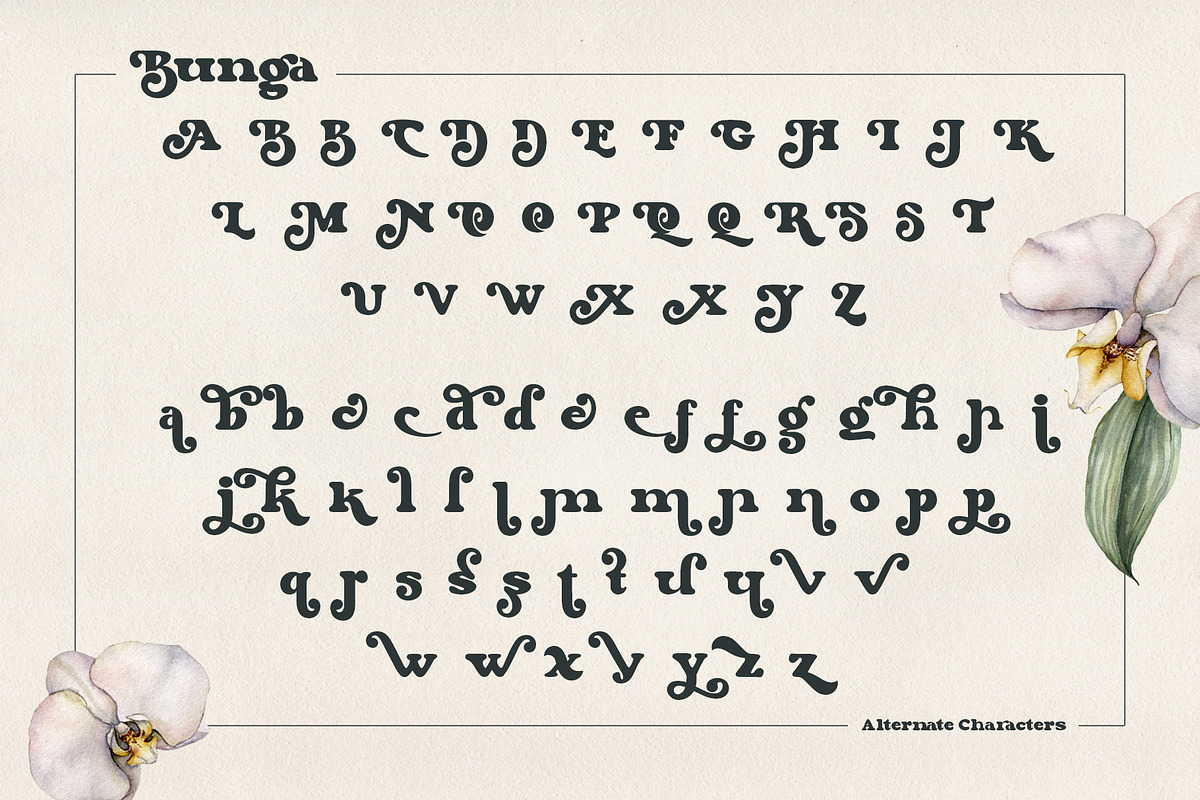 Bunga
A B B C D D E F G H I J K
L M N O O P Q Q R S S T
U V W X X Y Z
a b b c c d d e e f f g g h h i
j k k l l l m m n n o p p
q r s s s t t u u v v
w w x y y z z
Alternate Characters